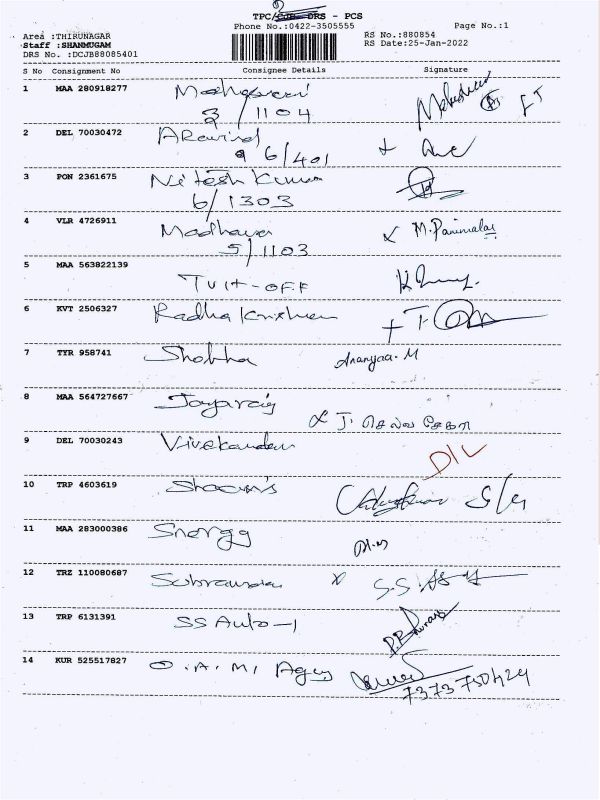 TPC/CJB DRS - PCS
Phone No.:0422-3505555
Page No.:1
Area :THIRUNAGAR
Staff :SHANMUGAM
DRS No. :DCJB88085401
RS No.:880854
RS Date:25-Jan-2022
S No Consignment No Consignee Details Signature
1 MAA 280918277
3/1104
2 DEL 70030472 Aravind
6/401
3 PON 2361675 Nitesh Kumar
6/1303
4 VLR 4726911 Madhava M. Panimalar
5/1103
5 MAA 563822139
TUIT-OFF
6 KVT 2506327 Radha Krishnan
7 TYR 958741 Shobha Ananyaa. M
8 MAA 564727667 Jayaraj
9 DEL 70030243 Vivekandan D/L
10 TRP 4603619
11 MAA 283000386
12 TRZ 110080687
13 TRP 6131391 SS Auto-1
14 KUR 525517827 O.A.M,
7373750424